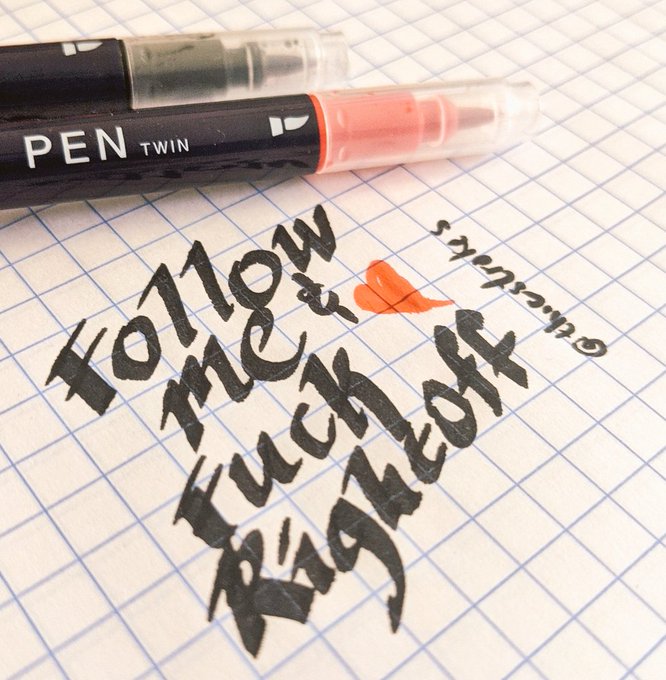 PEN TWIN
Follow
me &
Fuck
Right off
@thicstrokes